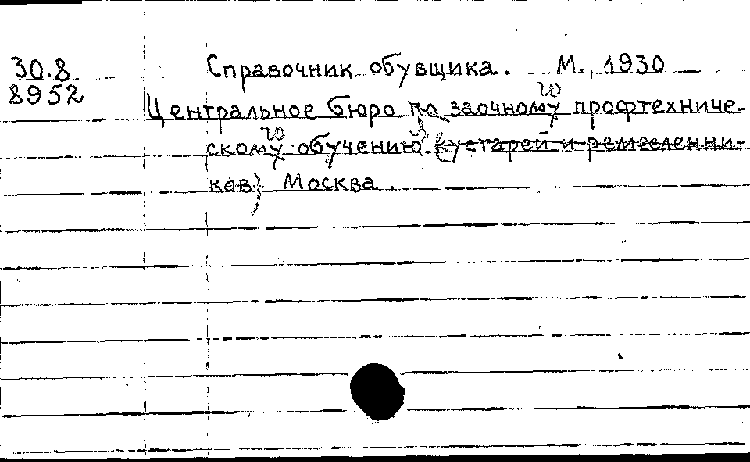 30.8 Справочник обувщика. М., 1930
8952
Центральное бюро по заочному профтехниче-
скому обучению (кустарей и ремесленни-
ков) Москва.